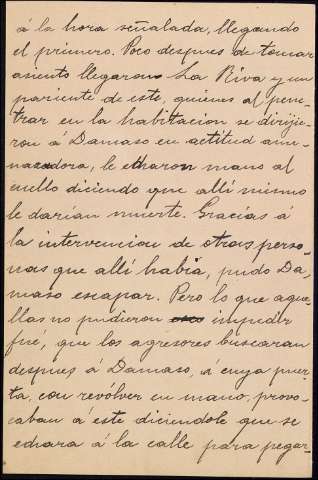 á la hora señalada, llegando
el primero. Poco despues de tomar
asiento llegaron La Riva y un
pariente de este, quienes al pene-
trar en la habitacion se dirijie-
ron á Damaso en actitud ame-
nazadora, le echaron mano al
cuello diciendo que allí mismo
le darían muerte. Gracias á
la intervencion de otras perso-
nas que allí había, pudo Da-
maso escapar. Pero lo que aque-
llas no pudieron impedir
fué, que los agresores buscaran
despues á Damaso, á cuya puer-
ta, con revólver en mano, provo-
caban á éste diciendole que se
echara á la calle para pegar-